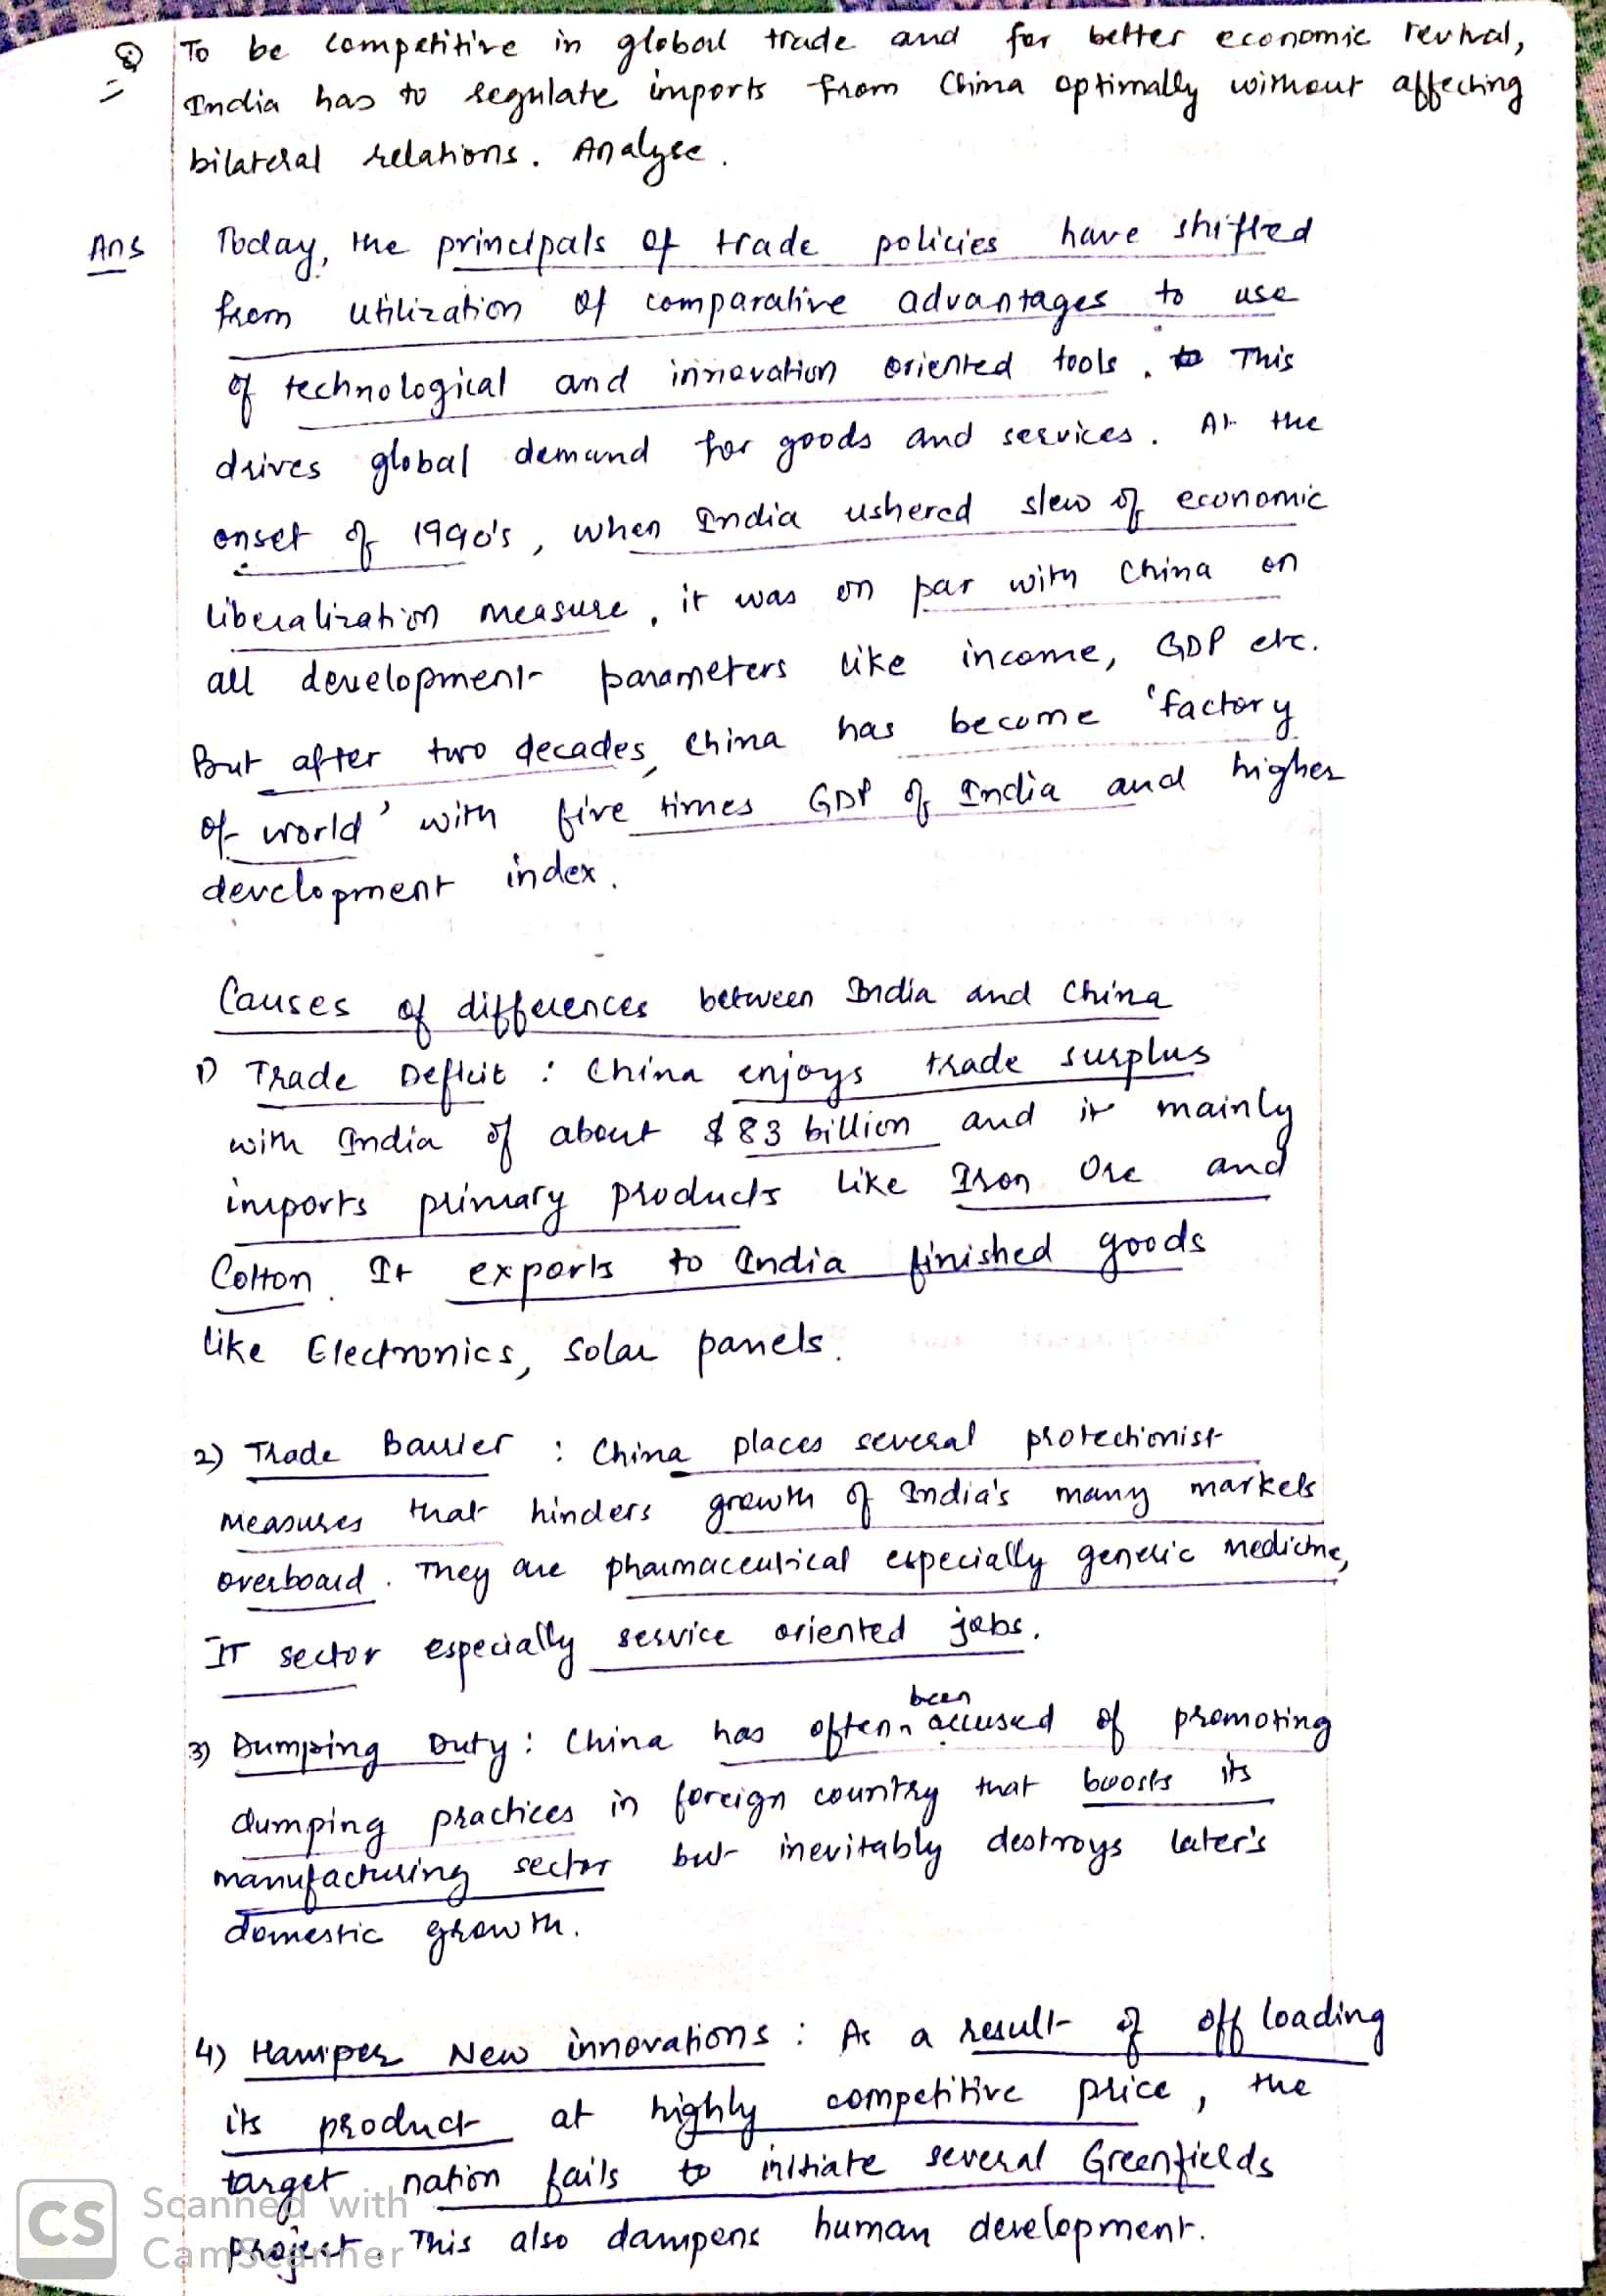 Q To be competitive in global trade and for better economic revival,
India has to regulate imports from China optimally without affecting
bilateral relations. Analyse.
Ans Today, the principals of trade policies have shifted
from utilization of comparative advantages to use
of technological and innovation oriented tools. This
drives global demand for goods and services. At the
onset of 1990's, when India ushered slew of economic
liberalization measure, it was on par with China on
all development parameters like income, GDP etc.
But after two decades, China has become 'factory
of world' with five times GDP of India and higher
development index.
Causes of differences between India and China
1) Trade Deficit : China enjoys trade surplus
with India of about $83 billion and it mainly
imports primary products like Iron Ore and
Cotton. It exports to India finished goods
like Electronics, solar panels.
2) Trade Barrier : China places several protectionist
measures that hinders growth of India's many markets
overboard. They are pharmaceutical especially generic medicine,
IT sector especially service oriented jobs.
3) Dumping Duty : China has often been accused of promoting
dumping practices in foreign country that boosts its
manufacturing sector but inevitably destroys later's
domestic growth.
4) Hamper New innovations : As a result of off loading
its product at highly competitive price, the
target nation fails to initiate several Greenfields
project. This also dampens human development.
CS Scanned with
CamScanner